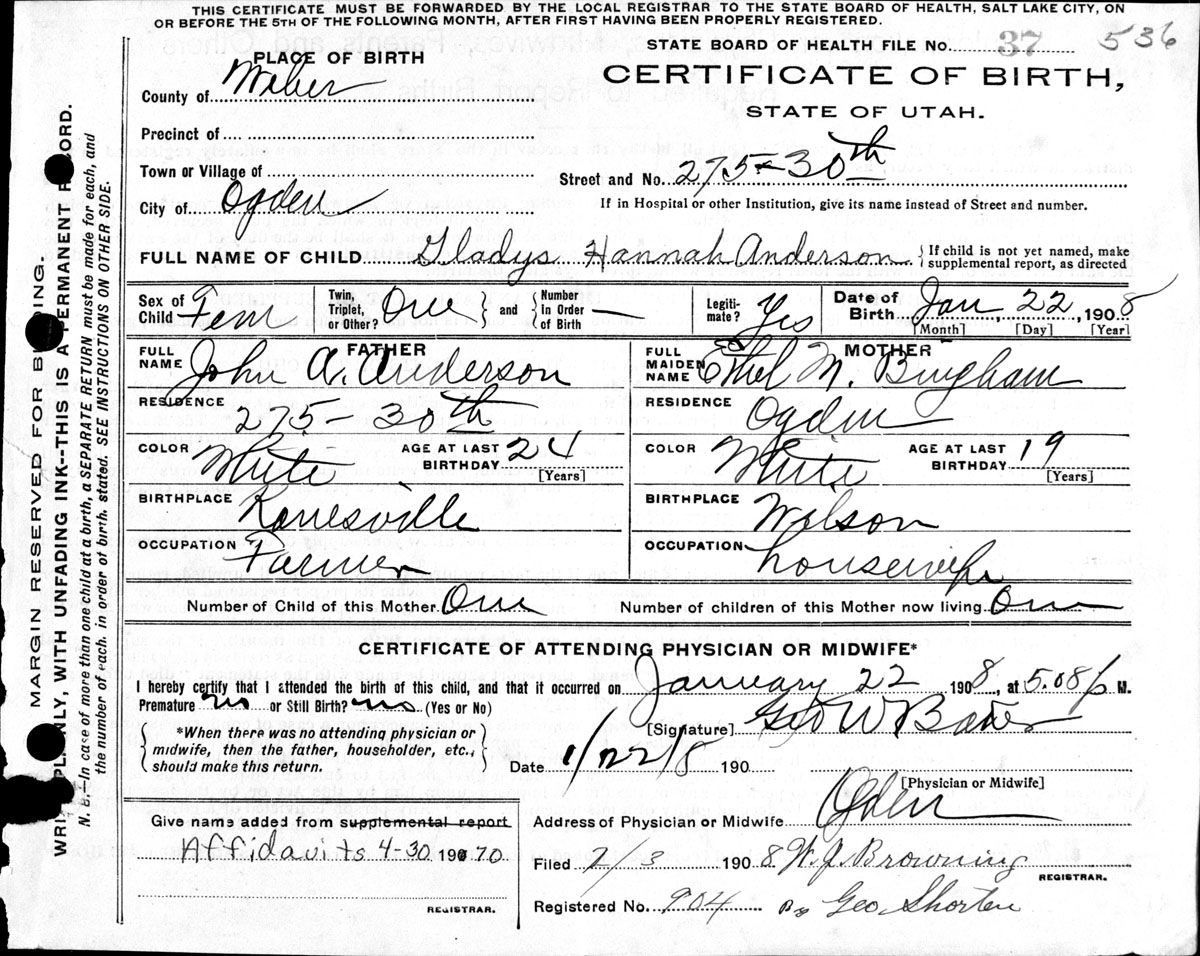 THIS CERTIFICATE MUST BE FORWARDED BY THE LOCAL REGISTRAR TO THE STATE BOARD OF HEALTH, SALT LAKE CITY, ON
OR BEFORE THE 5TH OF THE FOLLOWING MONTH, AFTER FIRST HAVING BEEN PROPERLY REGISTERED.
STATE BOARD OF HEALTH FILE No. 37 536
PLACE OF BIRTH
CERTIFICATE OF BIRTH,
County of Weber
STATE OF UTAH.
Precinct of
Town or Village of
Street and No. 275-30th
City of Ogden
If in Hospital or other Institution, give its name instead of Street and number.
FULL NAME OF CHILD Gladys Hannah Anderson { If child is not yet named, make supplemental report, as directed
Sex of Child Fem Twin, Triplet, or Other? One } and { Number In Order of Birth — Legiti- mate? Yes Date of Birth Jan, 22, 1908
[Month] [Day] [Year]
FATHER MOTHER
FULL NAME John A. Anderson FULL MAIDEN NAME Ethel M. Bingham
RESIDENCE 275-30th RESIDENCE Ogden
COLOR White AGE AT LAST BIRTHDAY 24 [Years] COLOR White AGE AT LAST BIRTHDAY 19 [Years]
BIRTHPLACE Kanesville BIRTHPLACE Wilson
OCCUPATION Farmer OCCUPATION housewife
Number of Child of this Mother One Number of children of this Mother now living One
CERTIFICATE OF ATTENDING PHYSICIAN OR MIDWIFE*
I hereby certify that I attended the birth of this child, and that it occurred on January 22 1908, at 5.08 p M.
Premature no or Still Birth? no (Yes or No)
[Signature] Geo W Baker
{ *When there was no attending physician or
midwife, then the father, householder, etc.,
should make this return. }
Date 1/22/8 190
[Physician or Midwife]
Give name added from supplemental report
Affidavits 4-30 1970
REGISTRAR.
Address of Physician or Midwife Ogden
Filed 2/3 1908 W. J. Browning
REGISTRAR.
Registered No. 904 Geo. Shorten
MARGIN RESERVED FOR BINDING.
WRITE PLAINLY, WITH UNFADING INK--THIS IS A PERMANENT RECORD.
N. B.—In case of more than one child at a birth, a SEPARATE RETURN must be made for each, and
the number of each, in order of birth, stated. SEE INSTRUCTIONS ON OTHER SIDE.